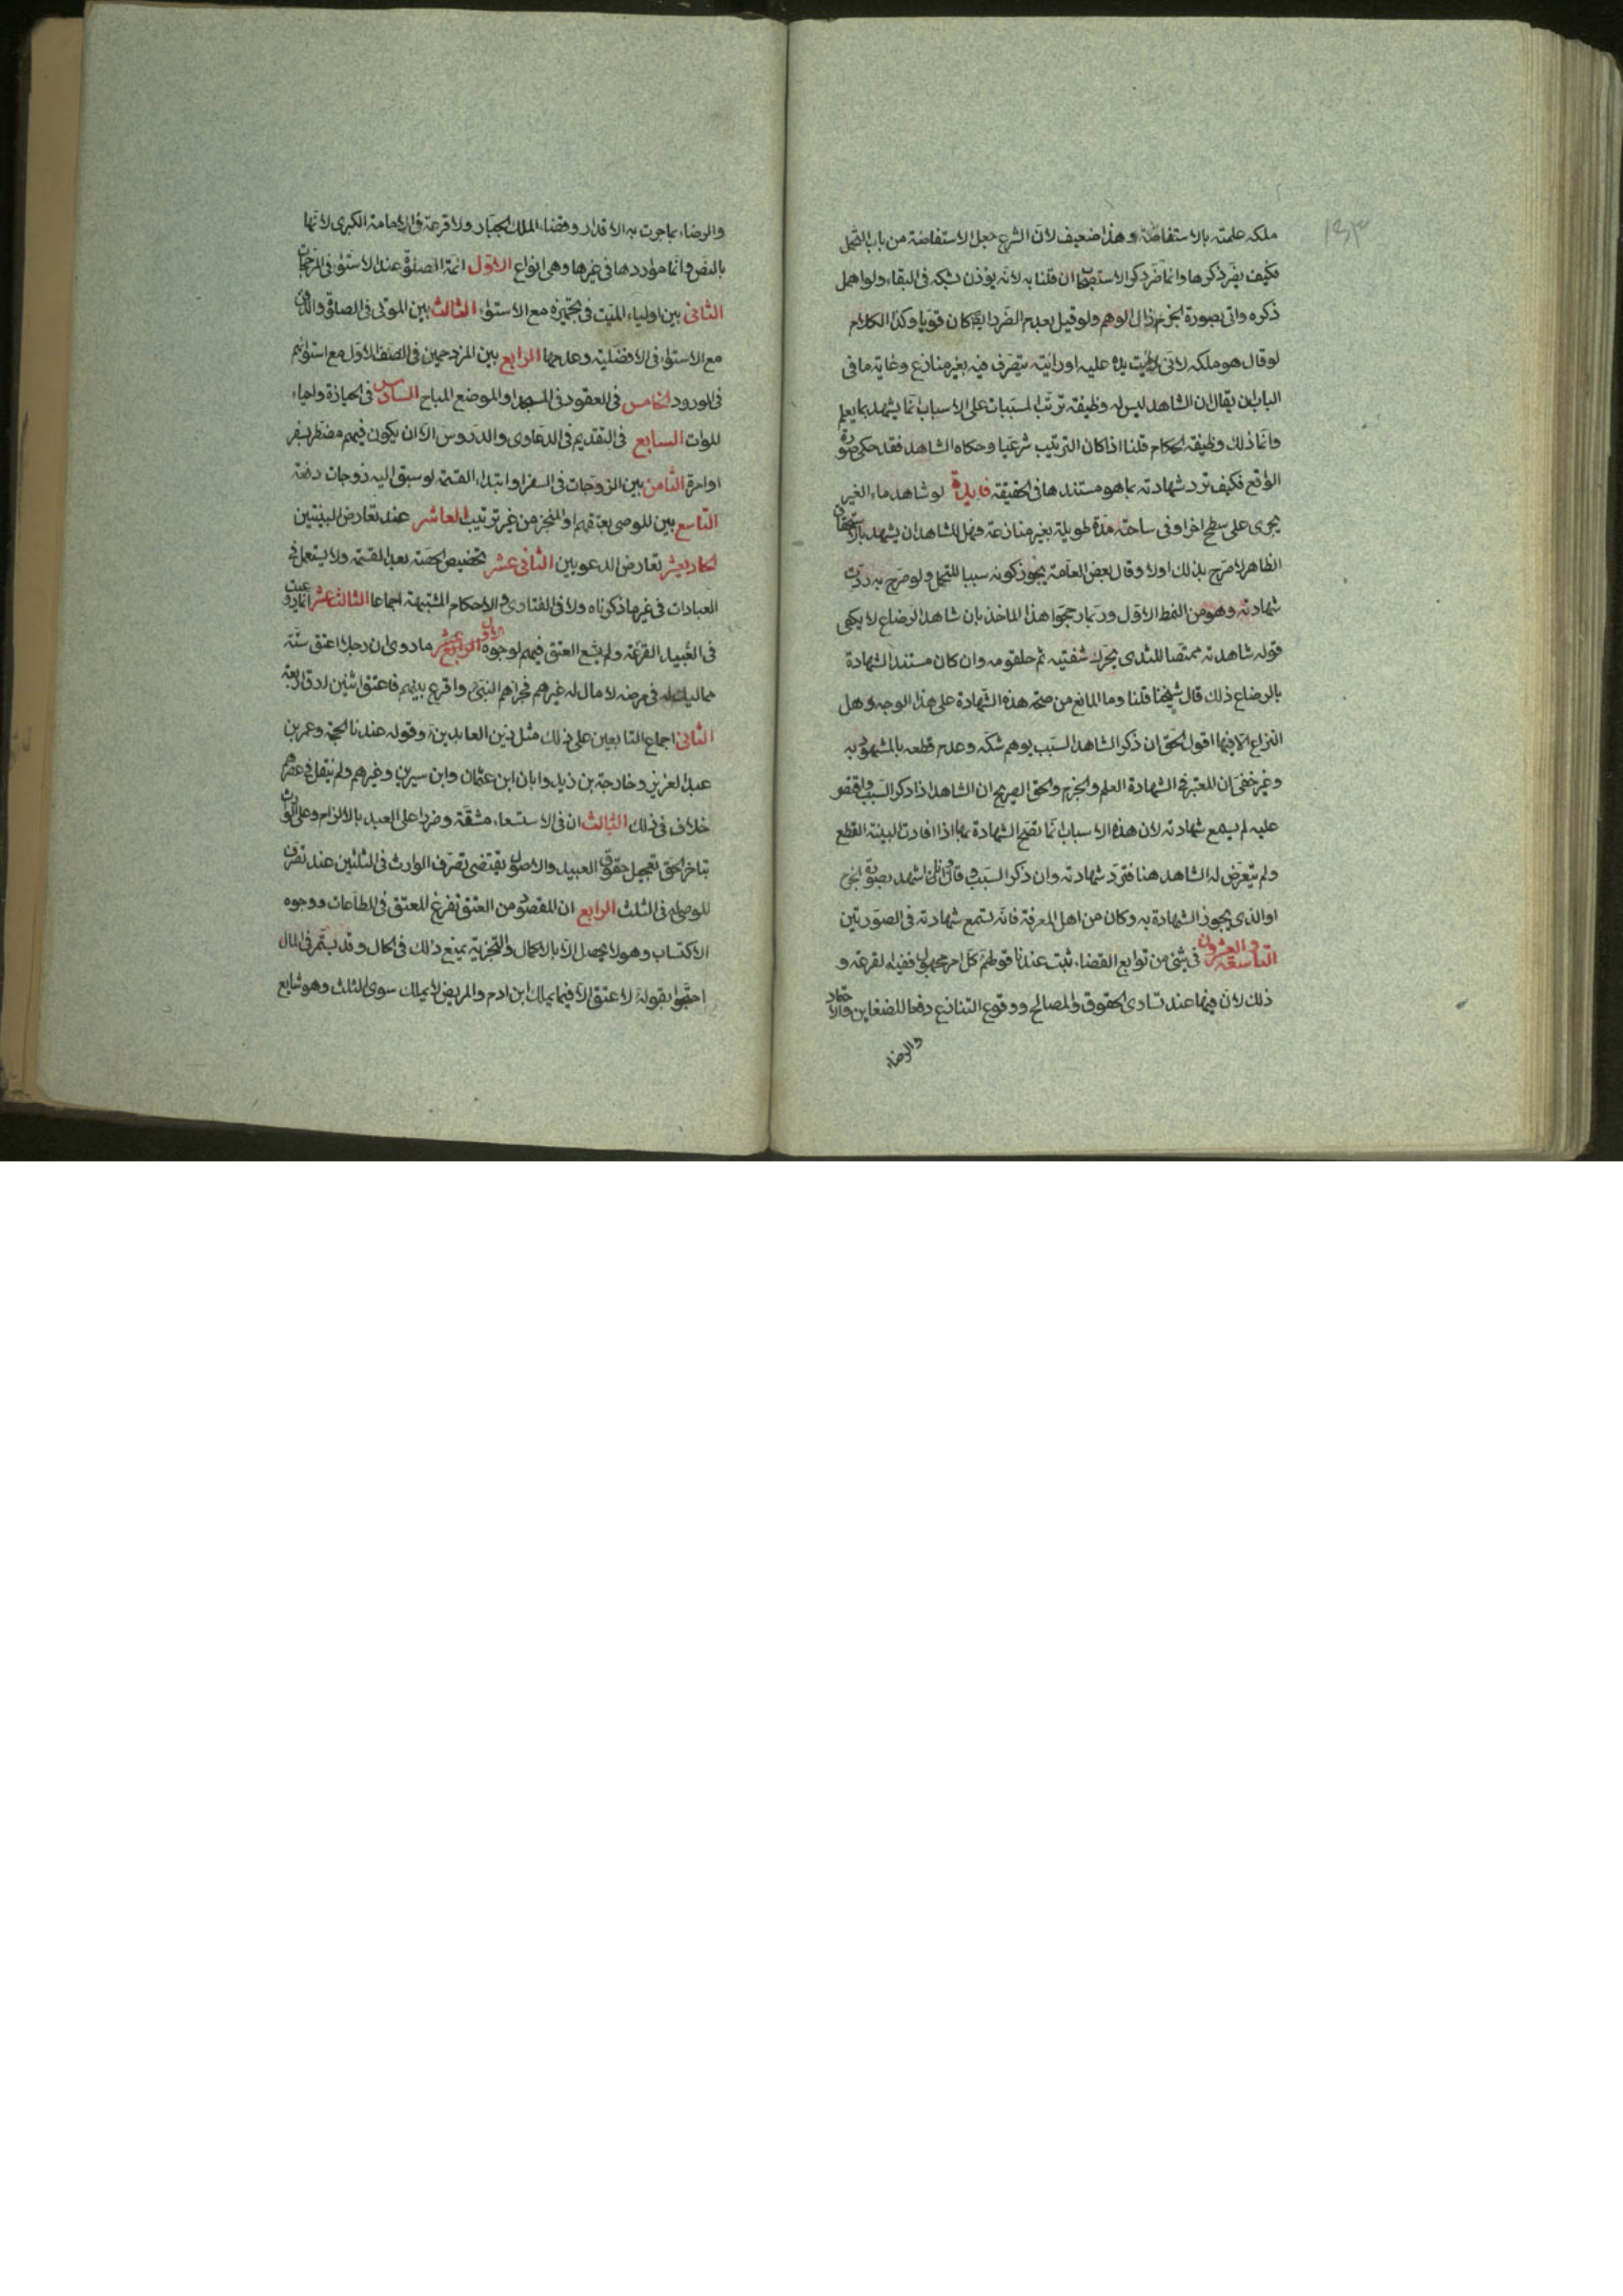 ملكه علمته بالاستفاضة وهذا ضعيف لان الشرع جعل الاستفاضة من باب التحمل
فكيف يضر ذكرها وانما ضر ذكر الاستصحاب ان قلنا به لانه يؤذن بشكه فى البقاء ولو اهمل
ذكره واتى بصورة الجزم زال الوهم ولو قيل بعدم الضرر ايضا كان قويا وكذا الكلام
لو قال هو ملكه لانى رايت يده عليه او رايته يتصرف فيه بغير منازع وغاية ما فى
الباب ان يقال ان الشاهد ليس له وظيفة ترتب المسببات على الاسباب انما يشهد بما يعلم
وانما ذلك وظيفة الحكام قلنا اذا كان الترتيب شرعيا وحكاه الشاهد فقد حكى صورة
الواقع فكيف ترد شهادته بما هو مستندها فى الحقيقة فايدة لو شاهد ماء الغير
يجرى على سطح اخر او فى ساحته مدة طويلة بغير منازعة فهل للشاهد ان يشهد بالاستحقاق
الظاهر لا صرح بذلك اولا وقال بعض العامة يجوز كونه سببا للتحمل ولو صرح به ردت
شهادته وهو من النمط الاول وربما رجحوا هذا الماخذ بان شاهد الرضاع لا يكفى
قوله شاهدته ممتصا للثدى يحرك شفتيه ثم حلقومه وان كان مستند الشهادة
بالرضاع ذلك قال شيخنا قلنا وما المانع من صحة هذه الشهادة على هذا الوجه وهل
النزاع الا فيها اقول الحق ان ذكر الشاهد السبب يوهم شكه وعدم قطعه بالمشهود به
وغير خفى ان المعتبر فى الشهادة العلم والجزم والحق الصريح ان الشاهد اذا ذكر السبب واقتصر
عليه لم يسمع شهادته لان هذه الاسباب انما تصح الشهادة بها اذا افادت البينة القطع
ولم يتعرض له الشاهد هنا فترد شهادته وان ذكر السبب وقال وانا اشهد بصورة الجزم
او الذى يجوز الشهادة به وكان من اهل المعرفة فانه تسمع شهادته فى الصورتين
التاسعة والعشرون فى شئ من توابع القضاء ثبت عندنا قولهم كل امر مجهول ففيه القرعة و
ذلك لان فيها عند تساوى الحقوق والمصالح ووقوع التنازع دفعا للضغاين والاحقاد
والرضاء
والرضاء بما جرت به الاقدار وقضاء الملك الجبار ولا قرعة فى الامامة الكبرى لانها
بالنص وانما مواردها فى غيرها وهى انواع الاول ائمة الصلوة عند الاستواء فى المرجحات
الثانى بين اولياء الميت فى تجهيزه مع الاستواء الثالث بين الموتى فى الصلوة والدفن
مع الاستواء فى الافضلية وعدمها الرابع بين المزدحمين فى الصف الاول مع استوائهم
فى الورود الخامس فى العقود فى المسجد او الموضع المباح السادس فى الحيازة واحياء
الموات السابع فى التقديم فى الدعاوى والدروس الا ان يكون فيهم مضطر بسفر
او امرة الثامن بين الزوجات فى السفر او ابتداء القسمة لو سبق اليه زوجات دفعة
التاسع بين الموصى بعتقهم او المنجز من غير ترتيب العاشر عند تعارض البينتين
الحاديعشر تعارض الدعويين الثانى عشر تخصيص الحصة بعد القسمة ولا يستعمل فى
العبادات فى غير ما ذكرناه ولا فى الفتاوى والاحكام المشتبهة اجماعا الثالث عشر انما روعيت
فى العبيد القرعة ولم يشع العتق فيهم لوجوه الاول الرابع عشر ما روى ان رجلا اعتق ستة
مماليك له فى مرضه لا مال له غيرهم فجزاهم النبى واقرع بينهم فاعتق اثنين وارق اربعة
الثانى اجماع التابعين على ذلك مثل زين العابدين وقوله عندنا الحجة وعمر بن
عبد العزيز وخارجة بن زيد وابان ابن عثمان وابن سيرين وغيرهم ولم ينقل فى عصرهم
خلاف فى ذلك الثالث ان فى الاستسعاء مشقة وضررا على العبد بالالزام وعلى الوارث
بتاخر الحق تعجيل حقوق العبيد والاصول يقتضى تصرف الوارث فى الثلثين عند تصرف
الموصى له فى الثلث الرابع ان المقصود من العتق تفرغ المعتق فى الطاعات ووجوه
الاكتساب وهو لا يحصل الا بالاكمال والتجزية يمنع ذلك فى الحال وقد يستمر فى المال
احتجوا بقوله لا عتق الا فيما يملك ابن ادم والمريض لا يملك سوى الثلث وهو شايع